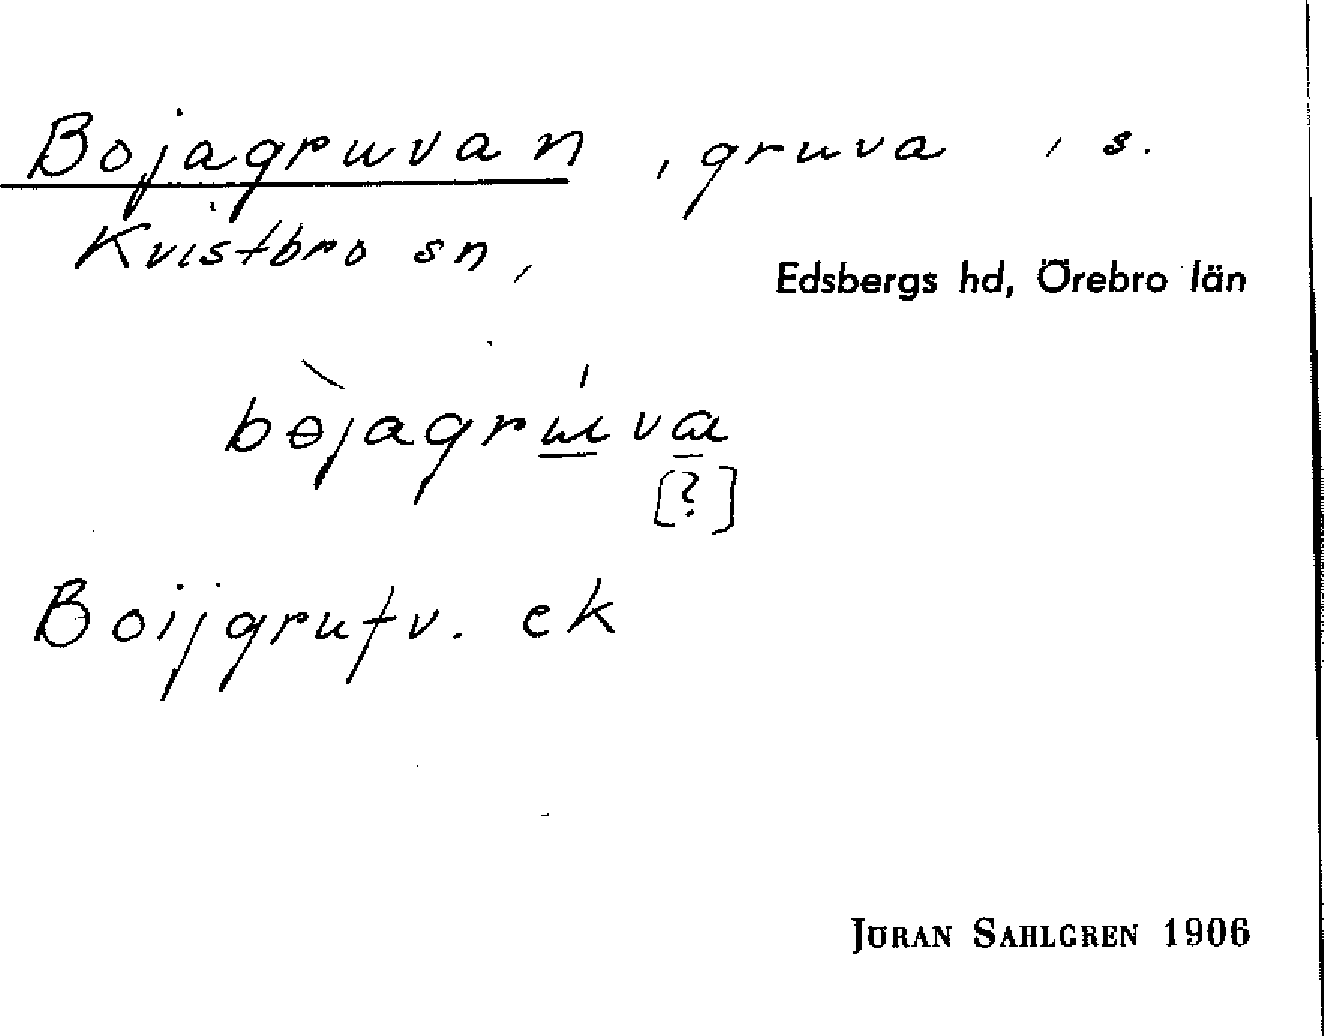 Bojagruvan, gruva, s.
Kvistbro sn,
Edsbergs hd, Örebro län
bɵ̀jagrúva
[?]
Boijgrufv. ek
JÖRAN SAHLGREN 1906